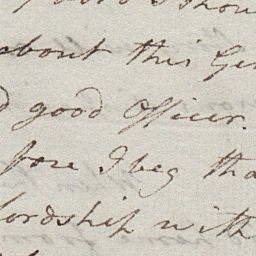 about this Gen
d good Officer.
fore I beg tha
lordship with